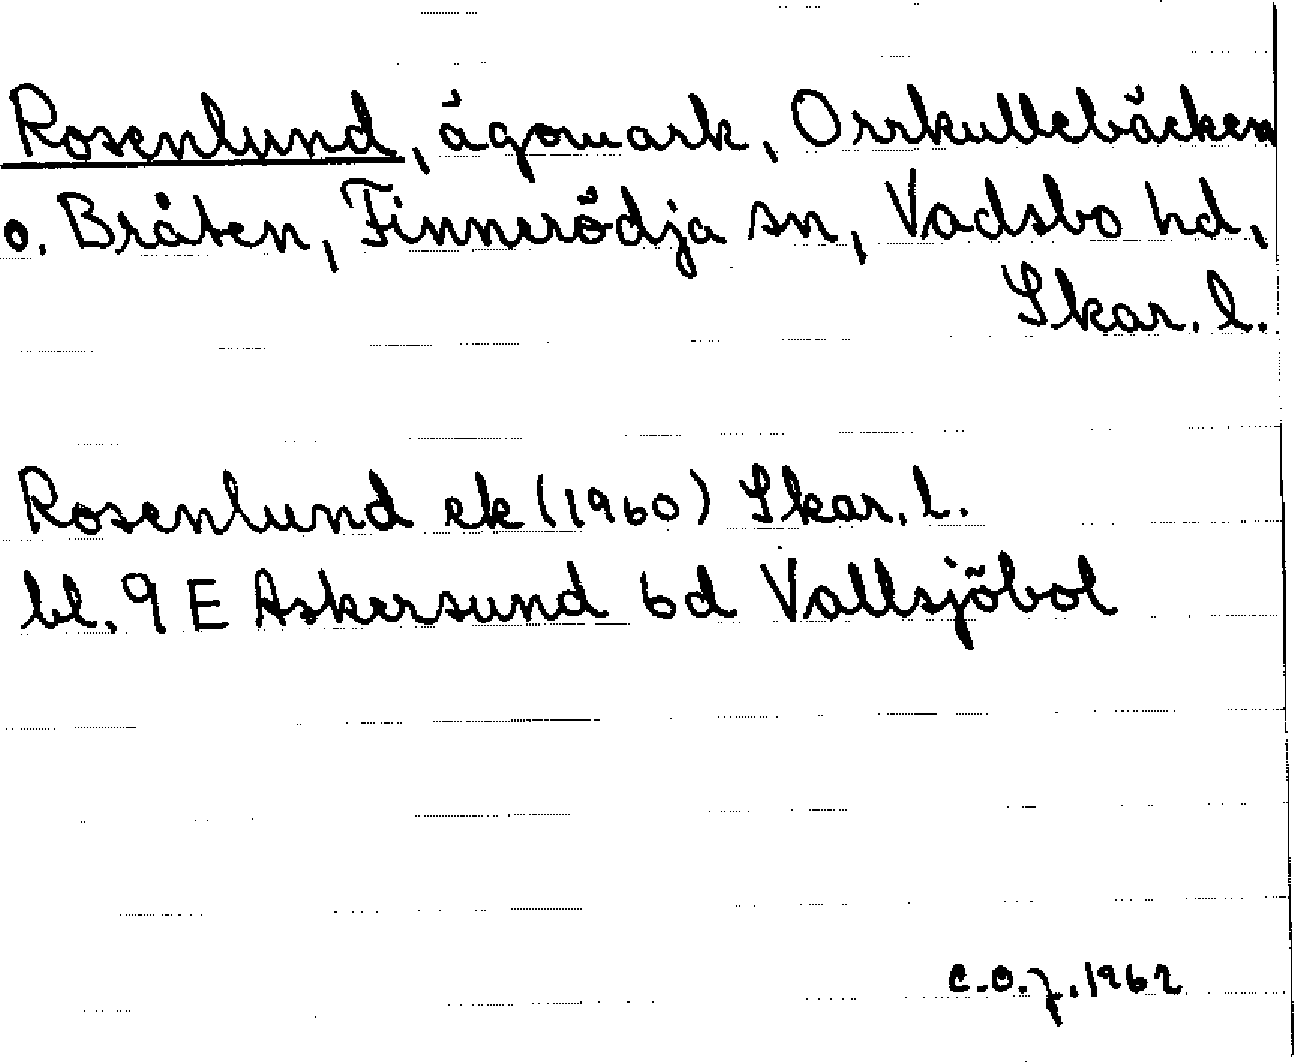 Rosenlund, ägomark, Orrkullebäcken
o. Bråten, Finnerödja sn, Vadsbo hd,
Skar. l.
Rosenlund ek (1960) Skar. l.
bl. 9 E Askersund 6d Vallsjöbol
C.O.J. 1962